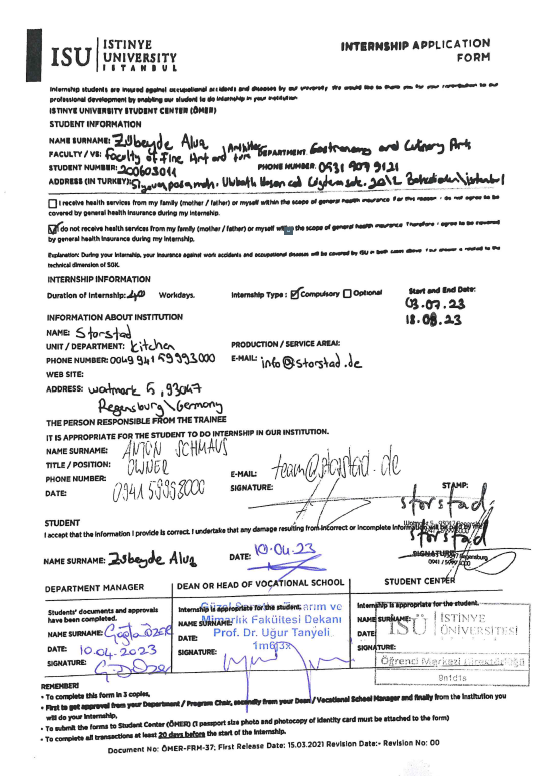 ISU
ISTINYE
UNIVERSITY
ISTANBUL
INTERNSHIP APPLICATION
FORM
Internship students are insured against occupational accidents and diseases by our university. We would like to thank you for your contribution to our
professional development by enabling our student to do internship in your institution
ISTINYE UNIVERSITY STUDENT CENTER (ÖMER)
STUDENT INFORMATION
NAME SURNAME: Zübeyde Alua
FACULTY / VS: Faculty of Fine Art and DEPARTMENT: Gastronomy and Culinary Arts
STUDENT NUMBER: 200603011 PHONE NUMBER: 0531 907 9121
ADDRESS (IN TURKEY): Istanbul
I receive health services from my family (mother / father) or myself within the scope of general health insurance. For this reason I do not agree to be
covered by general health insurance during my internship.
I do not receive health services from my family (mother / father) or myself within the scope of general health insurance. Therefore I agree to be covered
by general health insurance during my internship.
Explanation: During your internship, your insurance against work accidents and occupational diseases will be covered by ISU in both cases above. Your answer is related to the
technical dimension of SGK.
INTERNSHIP INFORMATION
Duration of Internship: 40 Workdays. Internship Type: Compulsory Optional
Start and End Date:
03.07.23
18.08.23
INFORMATION ABOUT INSTITUTION
NAME: Storstad
UNIT / DEPARTMENT: kitchen PRODUCTION / SERVICE AREA:
PHONE NUMBER: 0049 941 59993000 E-MAIL: info@storstad.de
WEB SITE:
ADDRESS: watmark 5, 93047
Regensburg\Germany
THE PERSON RESPONSIBLE FROM THE TRAINEE
IT IS APPROPRIATE FOR THE STUDENT TO DO INTERNSHIP IN OUR INSTITUTION.
NAME SURNAME: ANTON SCHMAUS
TITLE / POSITION: OWNER
E-MAIL: team@storstad.de
PHONE NUMBER: 0941 59993000
DATE:
SIGNATURE:
STAMP:
storstad.
STUDENT
I accept that the information I provide is correct. I undertake that any damage resulting from incorrect or incomplete information will be paid by me.
storstad
NAME SURNAME: Zübeyde Alua DATE: 10.04.23 SIGNATURE:
0941 / 59993000
DEPARTMENT MANAGER
DEAN OR HEAD OF VOCATIONAL SCHOOL
STUDENT CENTER
Students' documents and approvals
have been completed.
NAME SURNAME: Çağla Özer
DATE: 10.04.2023
SIGNATURE:
Internship is appropriate for the student.
NAME SURNAME:
DATE:
SIGNATURE:
Güzel Sanatlar Tasarım ve
Mimarlık Fakültesi Dekanı
Prof. Dr. Uğur Tanyeli
1m6f3x
Internship is appropriate for the student.
NAME SURNAME:
DATE:
SIGNATURE:
ISÜ
ISTINYE
ÜNİVERSİTESİ
Öğrenci Merkezi Direktörlüğü
9n1d1s
REMEMBER!
• To complete this form in 3 copies,
• First to get approval from your Department / Program Chair, secondly from your Dean / Vocational School Manager and finally from the institution you
will do your internship,
• To submit the forms to Student Center (ÖMER) (1 passport size photo and photocopy of identity card must be attached to the form)
• To complete all transactions at least 20 days before the start of the internship.
Document No: ÖMER-FRM-37; First Release Date: 15.03.2021 Revision Date:- Revision No: 00